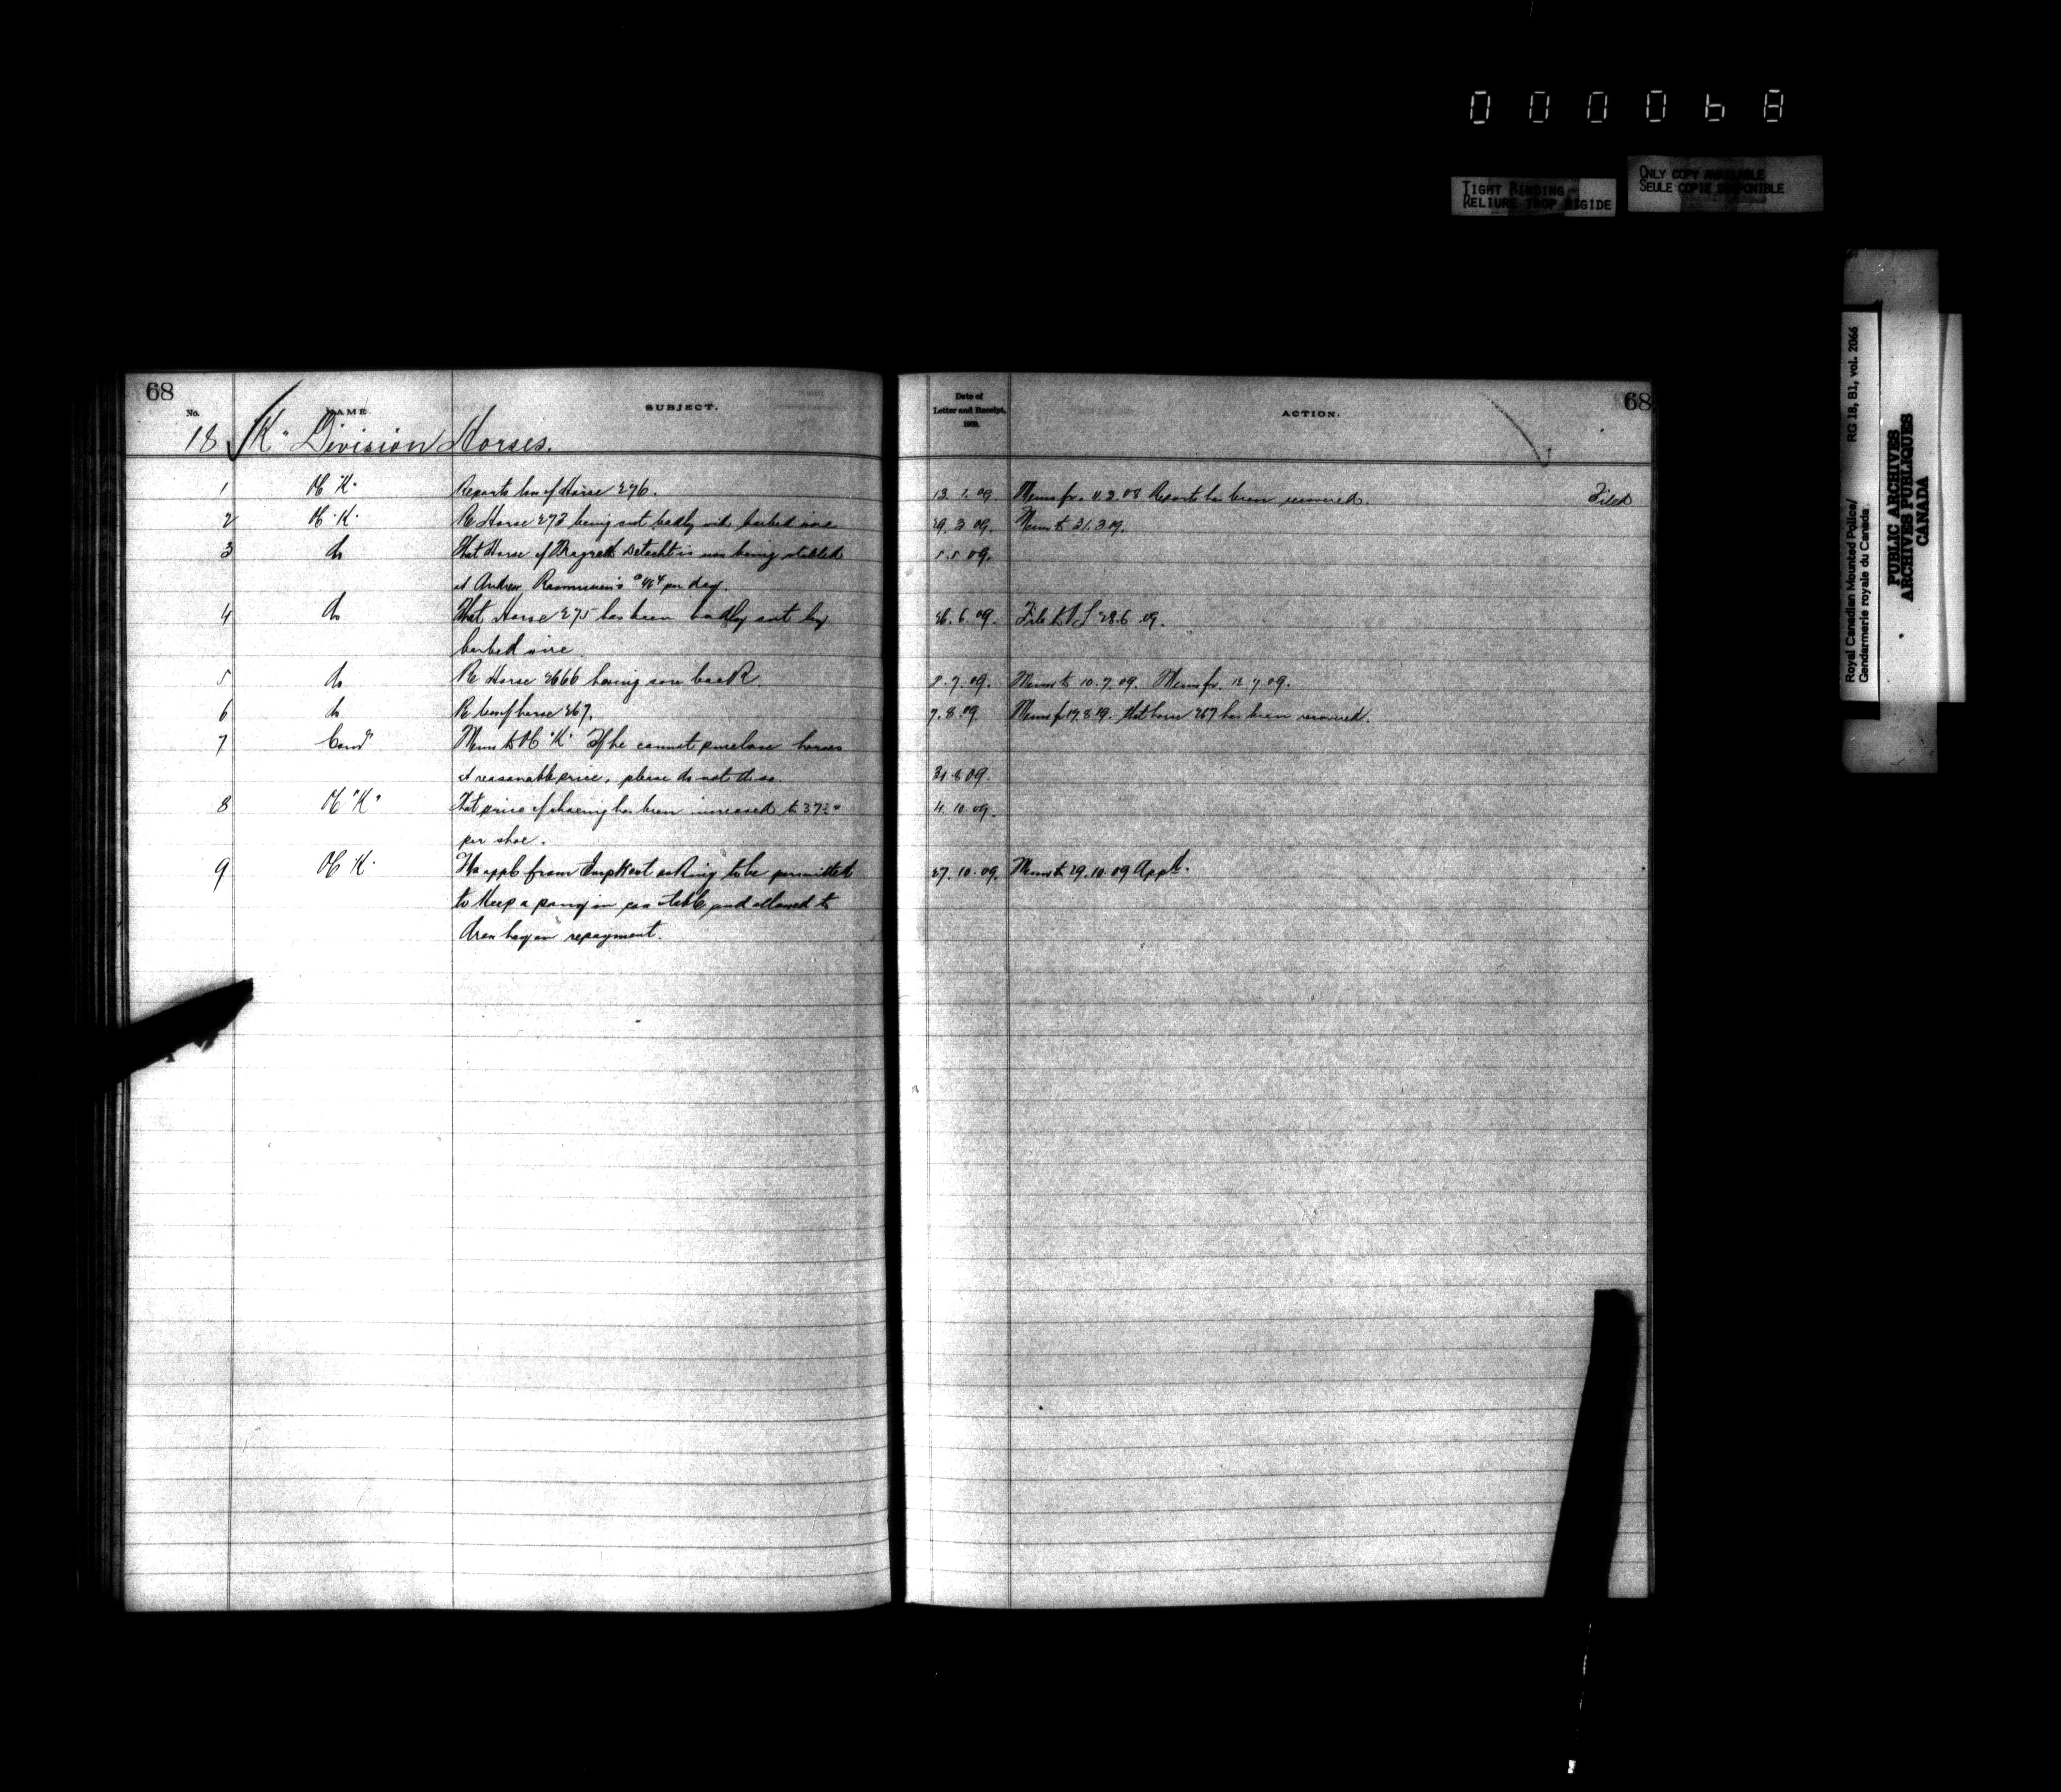 000068
TIGHT BINDING
RELIURE TROP RIGIDE
ONLY COPY AVAILABLE
SEULE COPIE DISPONIBLE
Royal Canadian Mounted Police/ RG 18, B1, vol. 2066
Gendarmerie royale du Canada
PUBLIC ARCHIVES
ARCHIVES PUBLIQUES
CANADA
68
No. NAME. SUBJECT.
18 "K" Division Horses.
Date of
Letter and Receipt,
1909.
ACTION.
68
1 OC "K" Reports loss of Horse 276. 13.1.09. Memo fr. 11.2.08 Reports has been recovered. Filed
2 OC "K" Re Horse 273 being cut badly with barbed wire 29.3.09. Memo to 31.3.09.
3 do That Horse of Detacht is now being stabled 5.5.09.
at Andrew Rasmussen's @ per day.
4 do That Horse 275 has been badly cut by 26.6.09. File to VS 28.6.09.
barbed wire.
5 do Re Horse 2666 having sore back. 8.7.09. Memo to 10.7.09. Memo fr. 12.7.09.
6 do Re loss of horse 267. 7.8.09 Memo fr 19.8.09. that horse 267 has been recovered.
7 Comr Memo to OC "K" If he cannot purchase horses
at reasonable price, please do not do so. 31.8.09.
8 OC "K" That price of shoeing has been increased to 37½ 4.10.09.
per shoe.
9 OC "K" Fds appl from Insp Heat asking to be permitted 27.10.09. Memo to 29.10.09 Appd.
to keep a pony in stable and allowed to
draw hay on repayment.